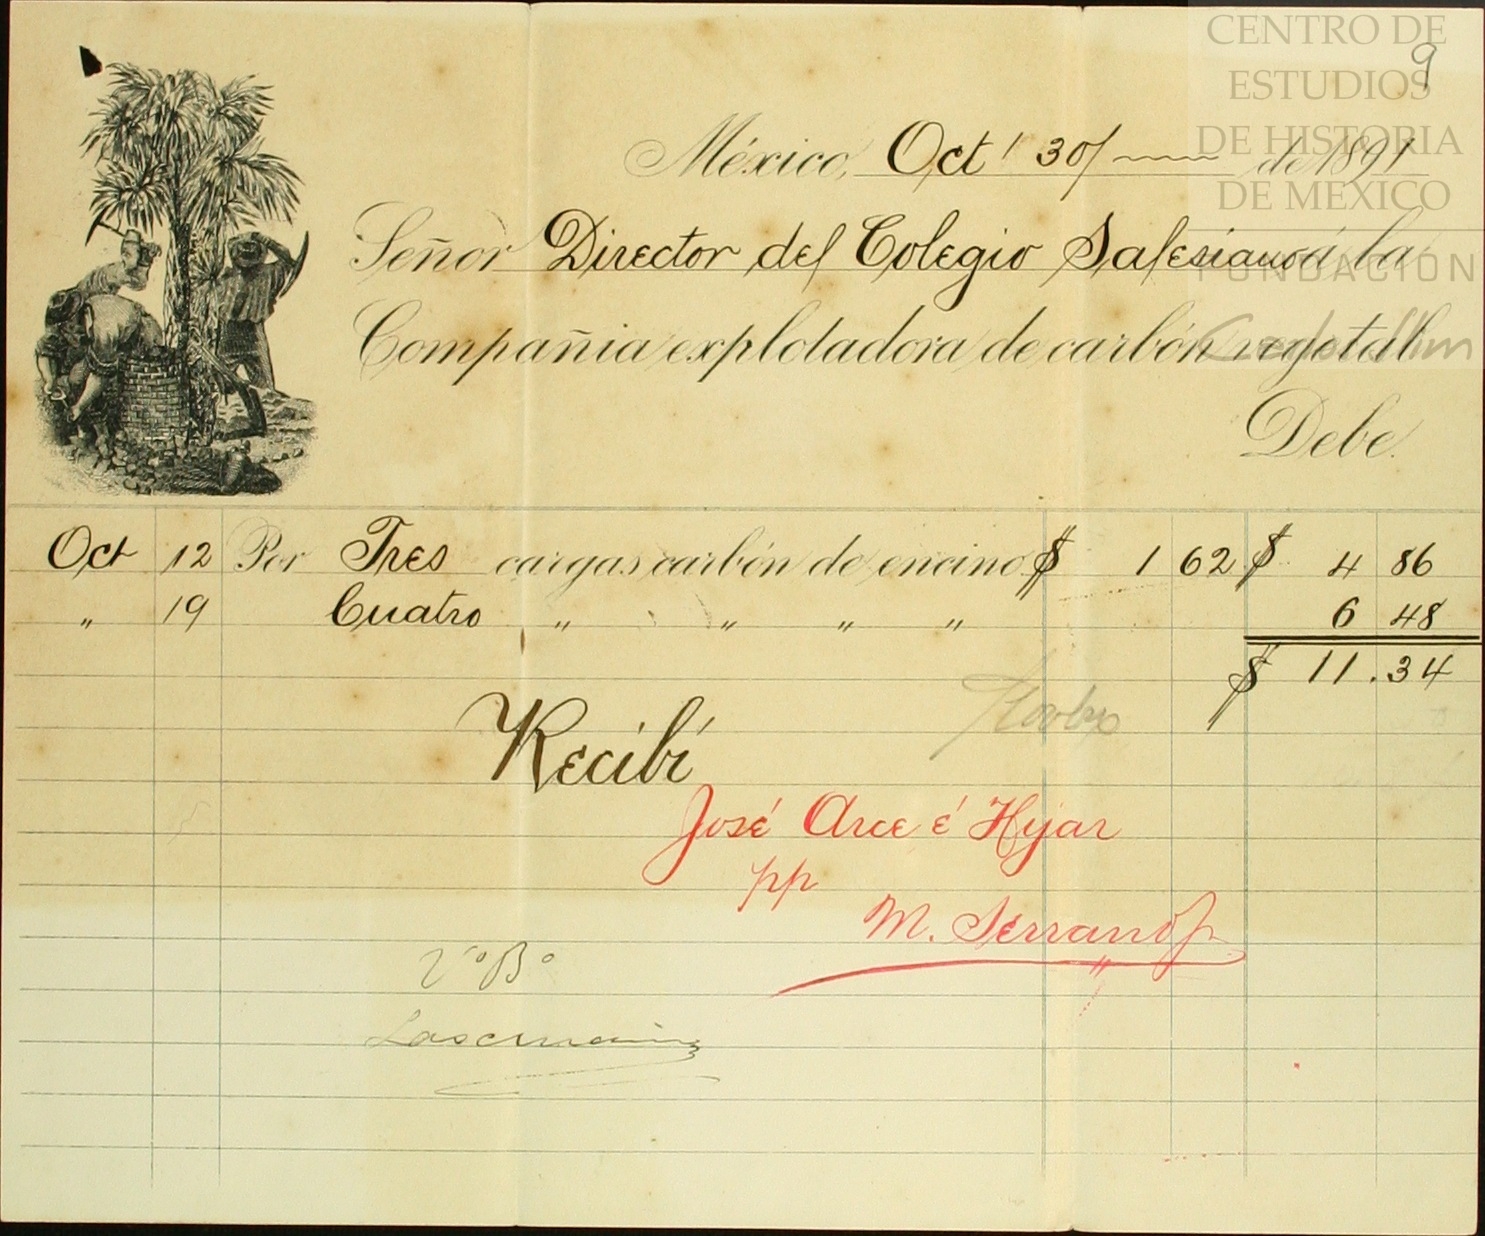 CENTRO DE
ESTUDIOS
DE HISTORIA
DE MEXICO
FUNDACIÓN
9
México, Oct 30/ de 1891
Señor Director del Colegio Salesiano á la
Compañia explotadora de carbón vegetal
Debe.
Oct 12 Por Tres cargas carbón de encino $ 1 62 $ 4 86
" 19 Cuatro " " " " 6 48
$ 11.34
Recibí
José Arce é Hijar
pp
M. Serrano
VoBo